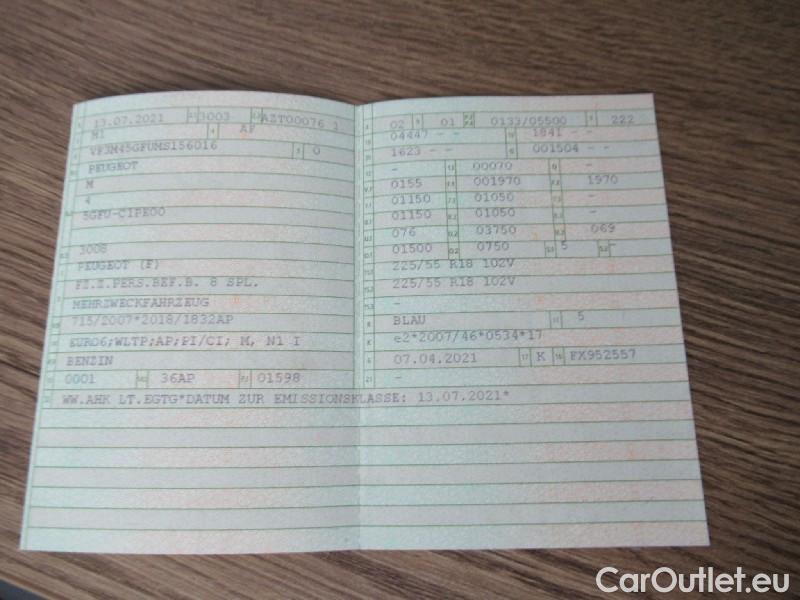 13.07.2021 3003 AZT00076 1
M1 AF
VF3M45GFUMS156016 0
PEUGEOT
M
4
5GFU-C1PE00
3008
PEUGEOT (F)
FZ.Z.PERS.BEF.B. 8 SPL.
MEHRZWECKFAHRZEUG
715/2007*2018/1832AP
EURO6;WLTP;AP;PI/CI; M, N1 I
BENZIN
0001 36AP 01598
02 01 0133/05500 222
04447 - - 1841 - -
1623 - - 001504 - -
- 00070 -
0155 001970 1970
01150 01050 -
01150 01050 -
076 03750 069
01500 0750 5 -
225/55 R18 102V
225/55 R18 102V
-
BLAU 5
e2*2007/46*0534*17
07.04.2021 K FX952557
-
WW.AHK LT.EGTG*DATUM ZUR EMISSIONSKLASSE: 13.07.2021*
CarOutlet.eu